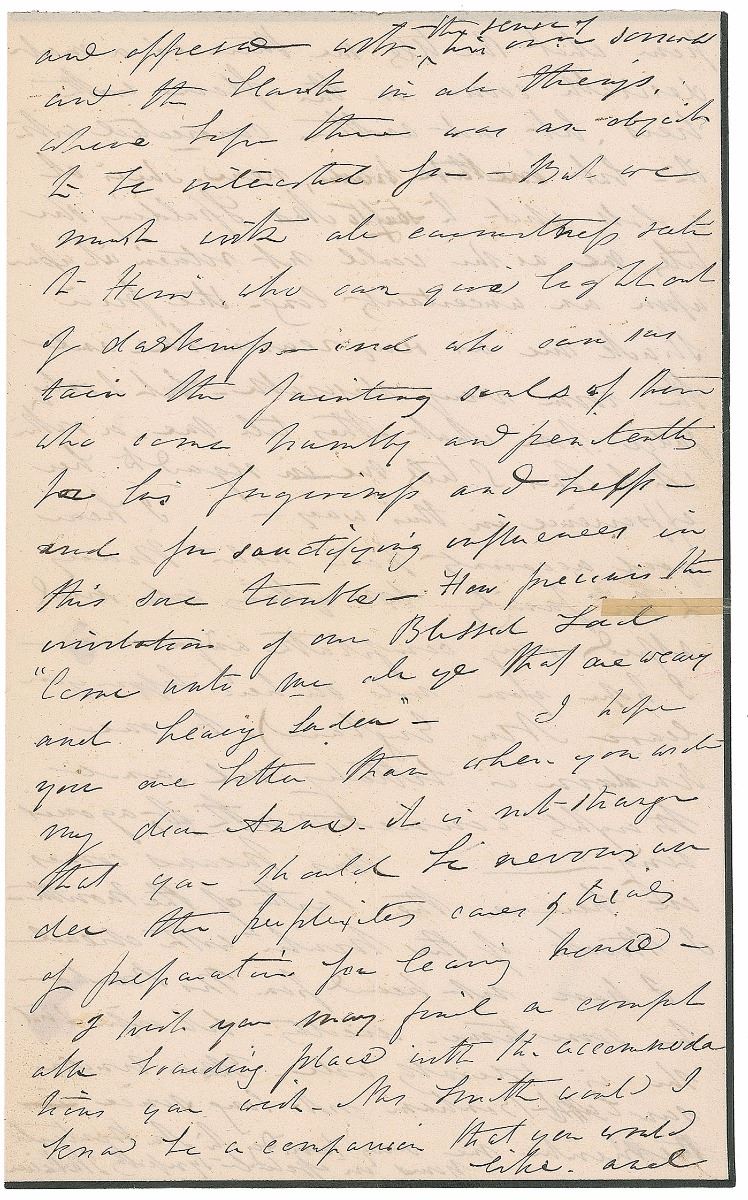 and oppressed with the sense of his own sorrow
and the blank in all things.
where before there was an object
to be interested for — But we
must with all earnestness
to Him, who can give light out
of darkness — and who can sus
tain the fainting souls of them
who come humbly and penitently
for his forgiveness and help —
and for sanctifying influences in
this sore trouble — How precious the
invitation of our Blessed Lord
"Come unto me all ye that are weary
and heavy laden" — I hope
you are better than when you wrote
my dear Anna. it is not strange
that you should be nervous un
der the perplexites cares & trials
of preparation for leaving home —
I wish you may find a comfort
able boarding place with the accommoda
tions you wish — Mrs Smith would I
know be a companion that you would
like. and